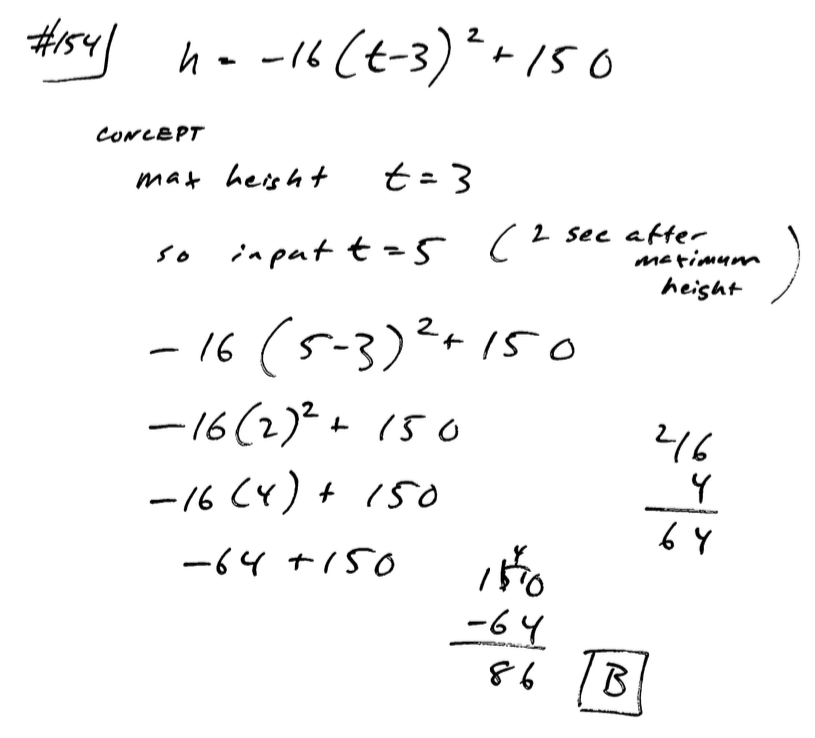 #154 h = -16(t-3)² + 150
CONCEPT
max height t = 3
so input t = 5 (2 sec after maximum height)
-16(5-3)² + 150
-16(2)² + 150
-16(4) + 150
-64 + 150
²16
4
64
4
150
-64
86 B